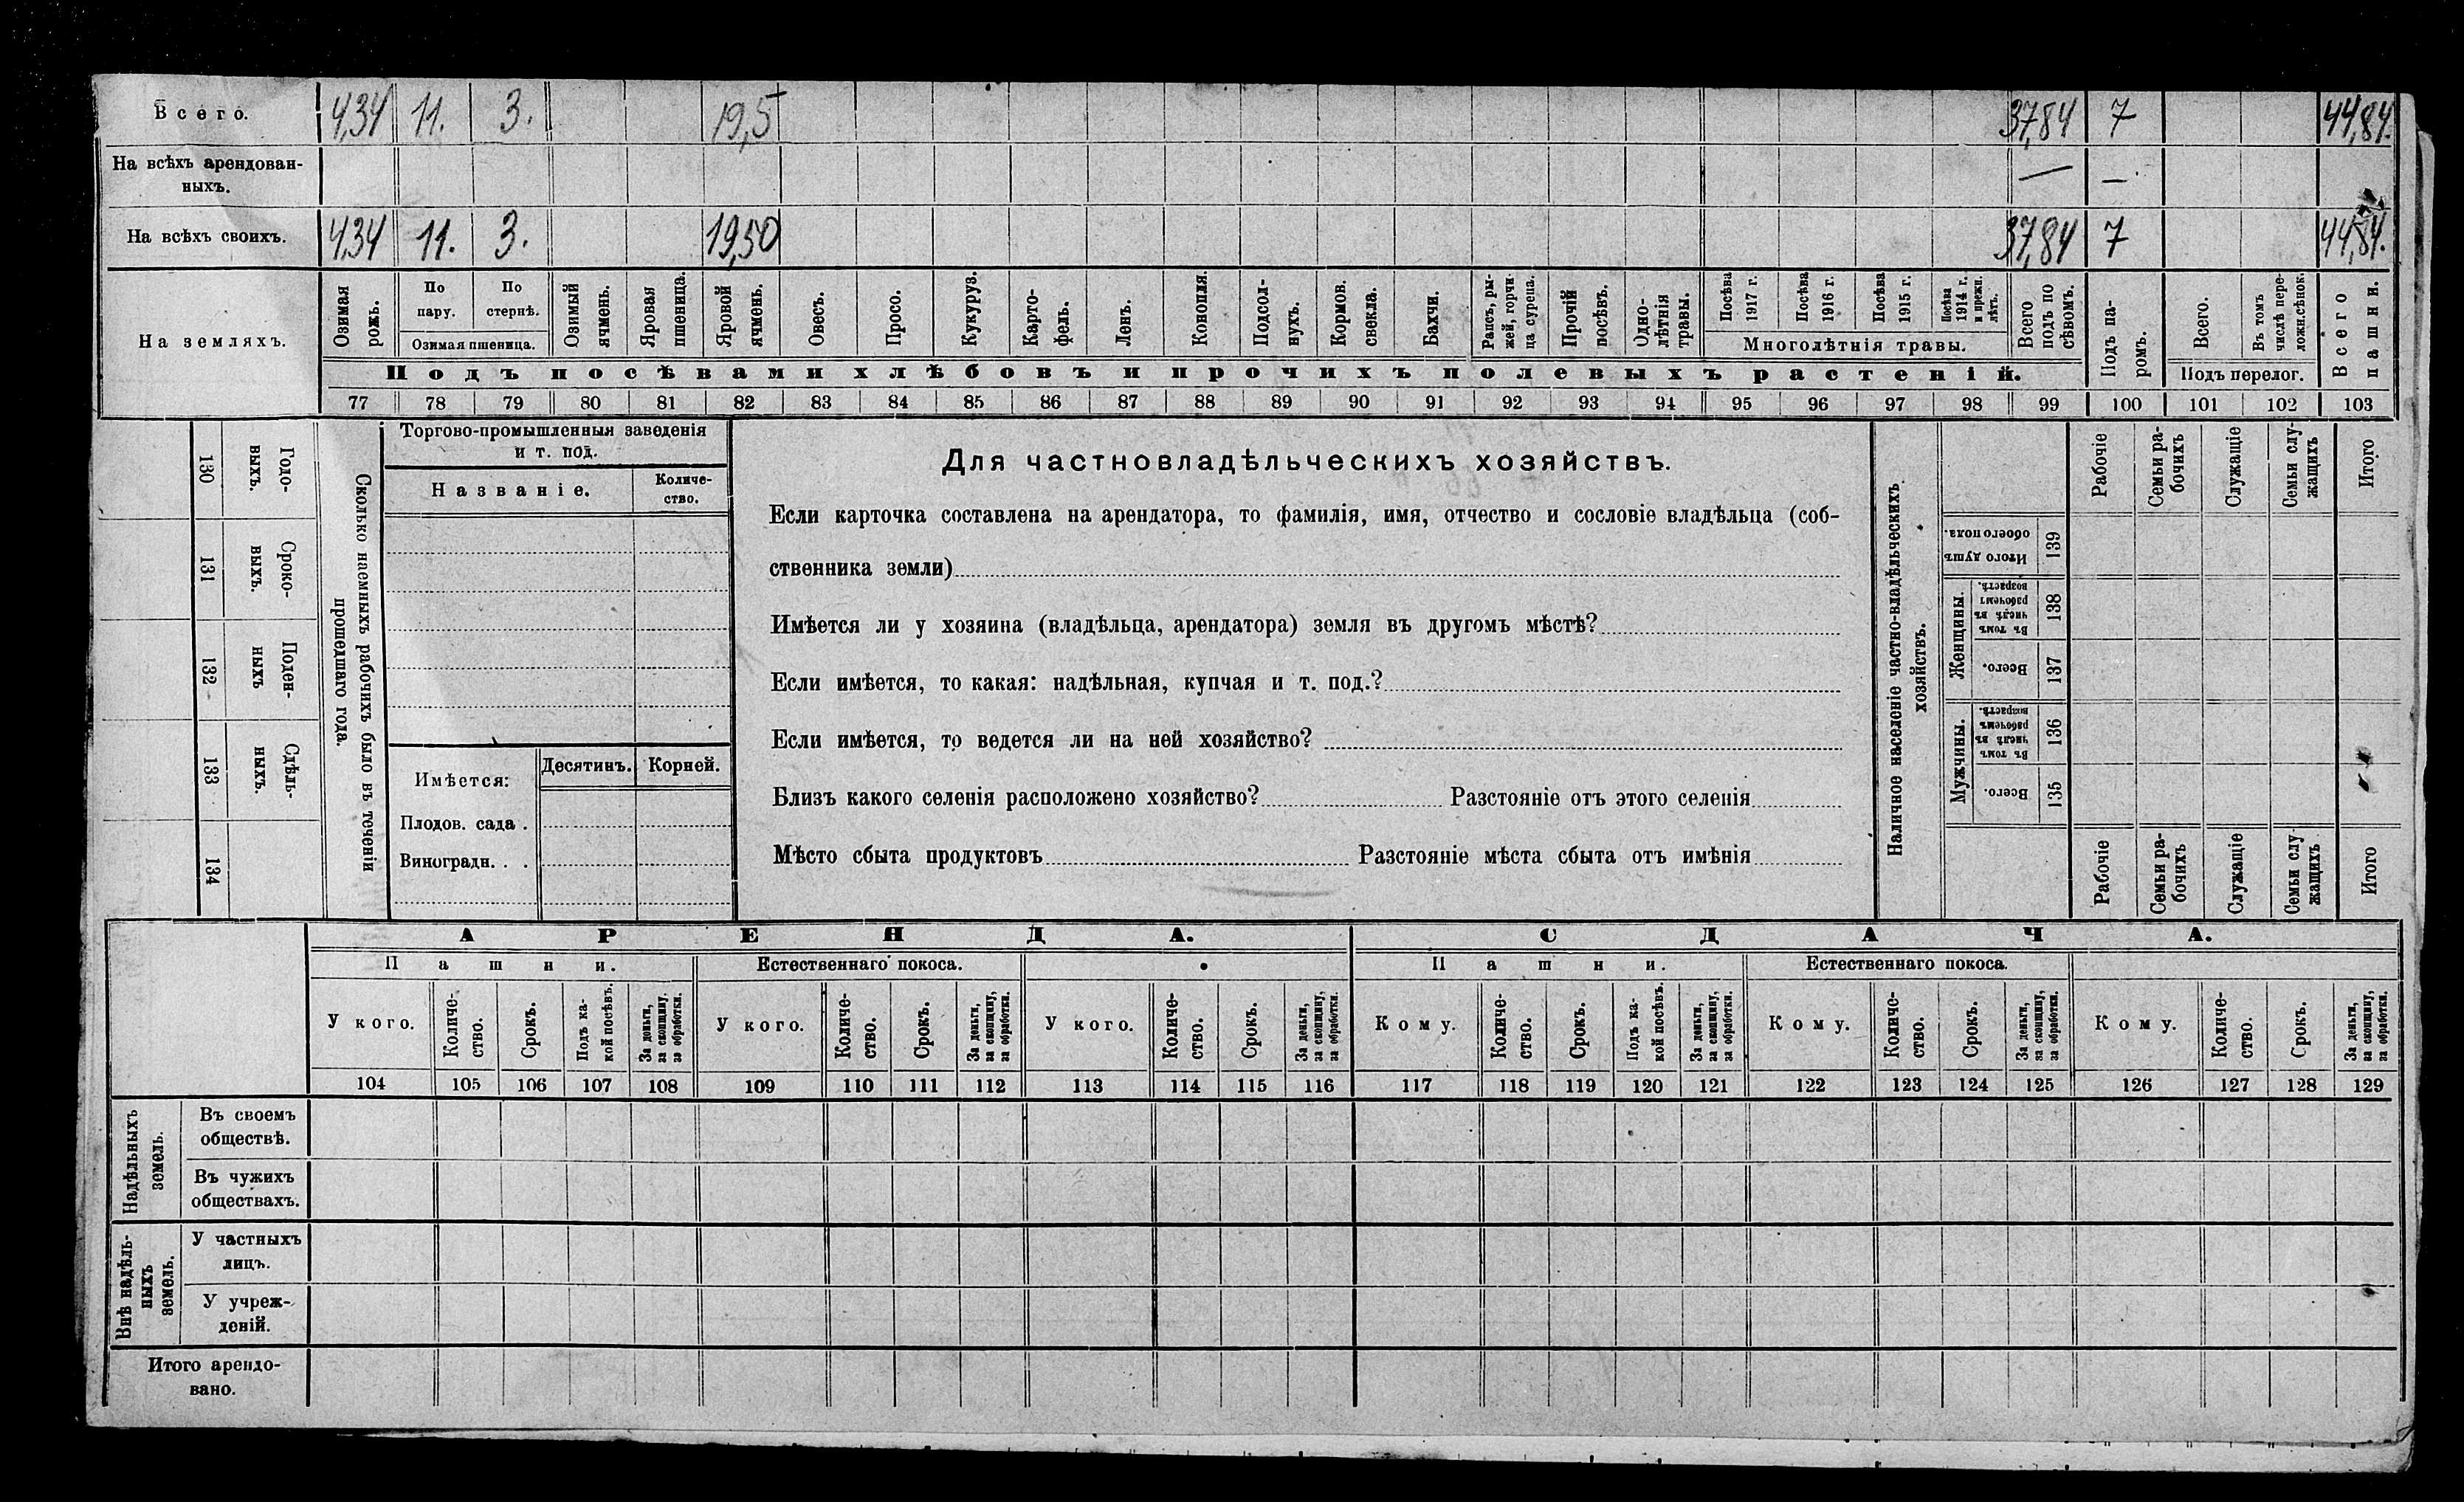 Всего. 4,34 11. 3. 19,5 37,84 7 44,84.
На всѣхъ арендован-
ныхъ. — —
На всѣхъ своихъ. 4,34 11. 3. 19,50 37,84 7 44,84.
На земляхъ.
Озимая рожь.
По пару.
По стернѣ.
Озимая пшеница.
Озимый ячмень.
Яровая пшеница.
Яровой ячмень.
Овесъ.
Просо.
Кукуруз.
Карто-
фель.
Ленъ.
Конопля.
Подсол-
нухъ.
Кормов. свекла.
Бахчи.
Рапсъ, ры-
жей, горчи-
ца сурепа.
Прочій посѣвъ.
Одно-
лѣтнія травы.
Посѣва 1917 г.
Посѣва 1916 г.
Посѣва 1915 г.
Посѣва 1914 г. и прежн. лѣтъ.
Многолѣтнія травы.
Всего подъ по
сѣвомъ.
Подъ па-
ромъ.
Всего.
Въ томъ числѣ пере-
ложн.сѣнок.
Подъ перелог.
Всего пашни.
Подъ посѣвами хлѣбовъ и прочихъ полевыхъ растеній.
77 78 79 80 81 82 83 84 85 86 87 88 89 90 91 92 93 94 95 96 97 98 99 100 101 102 103
Сколько наемныхъ рабочихъ было въ теченіи
прошедшаго года.
Годо-
выхъ.
130
Сроко-
выхъ.
131
Поден-
ныхъ
132
Сдѣль-
ныхъ.
133
134
Торгово-промышленныя заведенія
и т. под.
Названіе.
Количе-
ство.
Имѣется:
Десятинъ.
Корней.
Плодов. сада .
Виноградн. . .
Для частновладѣльческихъ хозяйствъ.
Если карточка составлена на арендатора, то фамилія, имя, отчество и сословіе владѣльца (соб-
ственника земли)
Имѣется ли у хозяина (владѣльца, арендатора) земля въ другомъ мѣстѣ?
Если имѣется, то какая: надѣльная, купчая и т. под.?
Если имѣется, то ведется ли на ней хозяйство?
Близъ какого селенія расположено хозяйство? Разстояніе отъ этого селенія
Мѣсто сбыта продуктовъ Разстояніе мѣста сбыта отъ имѣнія
Наличное населеніе частно-владѣльческихъ
хозяйствъ.
Рабочіе
Семьи ра-
бочихъ
Служащіе
Семьи слу-
жащихъ
Итого
Итого душъ
обоего пола.
139
Женщины.
Въ томъ числѣ въ рабочемъ возрастѣ.
138
Всего.
137
Мужчины.
Въ томъ числѣ въ рабочемъ возрастѣ.
136
Всего.
135
Рабочіе
Семьи ра-
бочихъ
Служащіе
Семьи слу
жащихъ
Итого
АРЕНДА.
СДАЧА.
Пашни.
Естественнаго покоса.
Пашни.
Естественнаго покоса.
У кого.
Количе-
ство.
Срокъ.
Подъ ка-
кой посѣвъ.
За деньги,
за скопщину,
за обработки.
У кого.
Количе-
ство.
Срокъ.
За деньги,
за скопщину,
за обработки.
У кого.
Количе-
ство.
Срокъ.
За деньги,
за скопщину,
за обработки.
Кому.
Количе-
ство.
Срокъ.
Подъ ка-
кой посѣвъ.
За деньги,
за скопщину,
за обработки.
Кому.
Количе-
ство.
Срокъ.
За деньги,
за скопщину,
за обработки.
Кому.
Количе-
ство.
Срокъ.
За деньги,
за скопщину,
за обработки.
104 105 106 107 108 109 110 111 112 113 114 115 116 117 118 119 120 121 122 123 124 125 126 127 128 129
Надѣльныхъ
земель.
Въ своемъ
обществѣ.
Въ чужихъ
обществахъ.
Внѣ надѣль-
ныхъ
земель.
У частныхъ
лицъ.
У учреж-
деній.
Итого арендо-
вано.